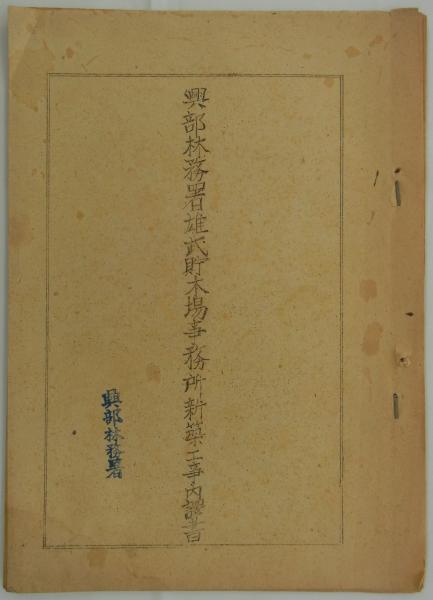 興部林務署雄武貯木場事務所新築工事内訳書
興部林務署